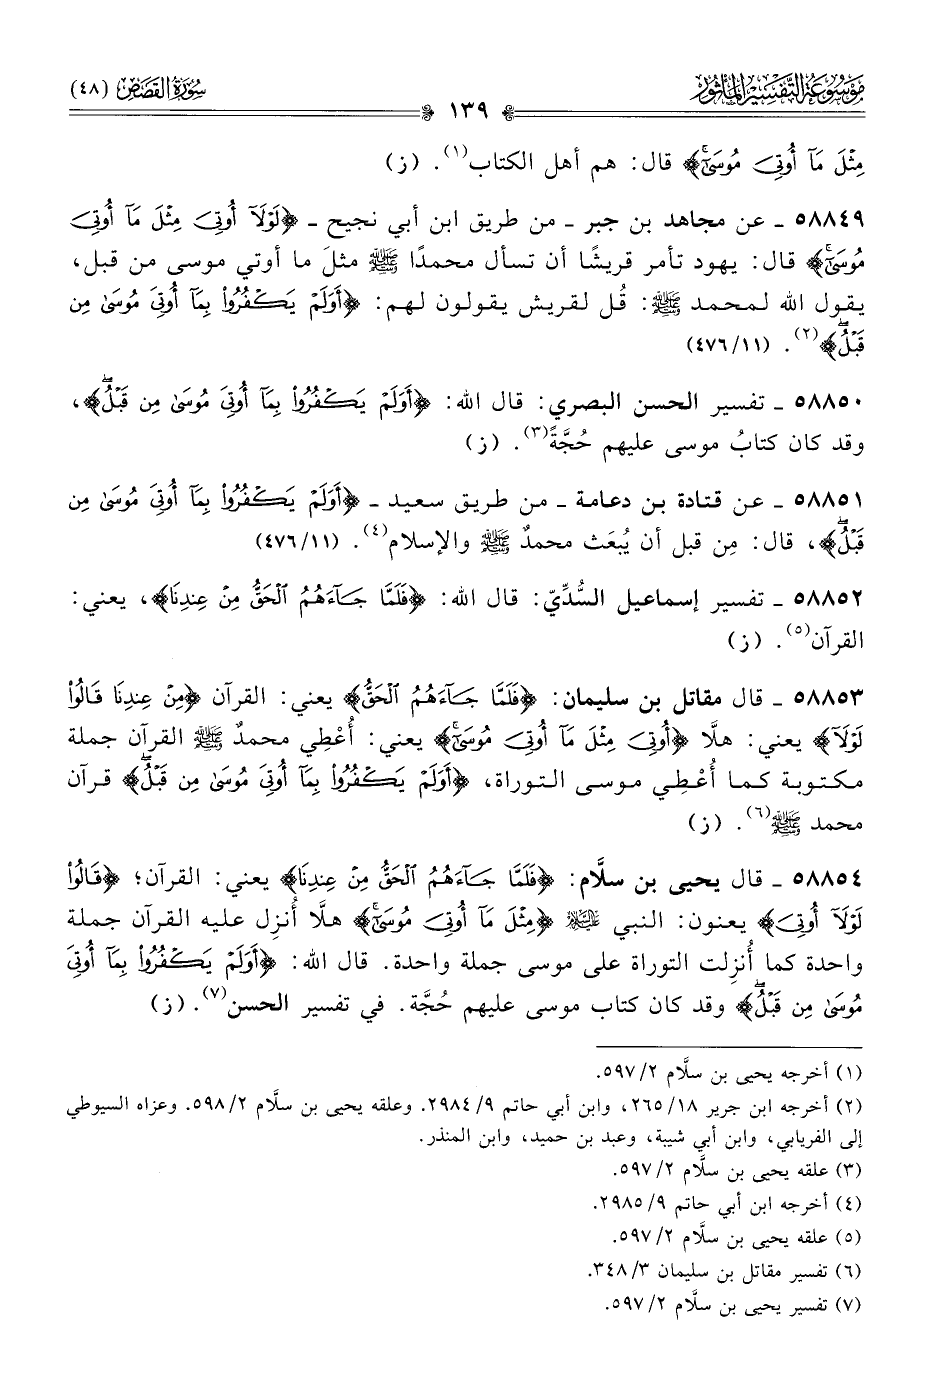 موسوعة التفسير المأثور
سورة القصص (٤٨)
١٣٩
مِثْلَ مَآ أُوتِىَ مُوسَىٰٓۚ﴾ قال: هم أهل الكتاب(١). (ز)
٥٨٨٤٩ ـ عن مجاهد بن جبر ـ من طريق ابن أبي نجيح ـ ﴿لَوْلَآ أُوتِىَ مِثْلَ مَآ أُوتِىَ
مُوسَىٰٓۚ﴾ قال: يهود تأمر قريشًا أن تسأل محمدًا ﷺ مثلَ ما أوتي موسى من قبل،
يقول الله لمحمد ﷺ: قُل لقريش يقولون لهم: ﴿أَوَلَمْ يَكْفُرُوا۟ بِمَآ أُوتِىَ مُوسَىٰ مِن
قَبْلُۖ﴾(٢). (٤٧٦/١١)
٥٨٨٥٠ ـ تفسير الحسن البصري: قال الله: ﴿أَوَلَمْ يَكْفُرُوا۟ بِمَآ أُوتِىَ مُوسَىٰ مِن قَبْلُۖ﴾،
وقد كان كتابُ موسى عليهم حُجَّةً(٣). (ز)
٥٨٨٥١ ـ عن قتادة بن دعامة ـ من طريق سعيد ـ ﴿أَوَلَمْ يَكْفُرُوا۟ بِمَآ أُوتِىَ مُوسَىٰ مِن
قَبْلُۖ﴾، قال: مِن قبل أن يُبعَث محمدٌ ﷺ والإسلام(٤). (٤٧٦/١١)
٥٨٨٥٢ ـ تفسير إسماعيل السُّدِّيّ: قال الله: ﴿فَلَمَّا جَآءَهُمُ ٱلْحَقُّ مِنْ عِندِنَا﴾، يعني:
القرآن(٥). (ز)
٥٨٨٥٣ ـ قال مقاتل بن سليمان: ﴿فَلَمَّا جَآءَهُمُ ٱلْحَقُّ﴾ يعني: القرآن ﴿مِنْ عِندِنَا قَالُوا۟
لَوْلَآ﴾ يعني: هلَّا ﴿أُوتِىَ مِثْلَ مَآ أُوتِىَ مُوسَىٰٓۚ﴾ يعني: أُعْطِي محمدٌ ﷺ القرآن جملة
مكتوبة كما أُعْطِي موسى التوراة، ﴿أَوَلَمْ يَكْفُرُوا۟ بِمَآ أُوتِىَ مُوسَىٰ مِن قَبْلُۖ﴾ قرآن
محمد ﷺ(٦). (ز)
٥٨٨٥٤ ـ قال يحيى بن سلَّام: ﴿فَلَمَّا جَآءَهُمُ ٱلْحَقُّ مِنْ عِندِنَا﴾ يعني: القرآن؛ ﴿قَالُوا۟
لَوْلَآ أُوتِىَ﴾ يعنون: النبي ﷺ ﴿مِثْلَ مَآ أُوتِىَ مُوسَىٰٓۚ﴾ هلَّا أُنزِل عليه القرآن جملة
واحدة كما أُنزِلت التوراة على موسى جملة واحدة. قال الله: ﴿أَوَلَمْ يَكْفُرُوا۟ بِمَآ أُوتِىَ
مُوسَىٰ مِن قَبْلُۖ﴾ وقد كان كتاب موسى عليهم حُجَّة. في تفسير الحسن(٧). (ز)
(١) أخرجه يحيى بن سلَّام ٥٩٧/٢.
(٢) أخرجه ابن جرير ٢٦٥/١٨، وابن أبي حاتم ٢٩٨٤/٩. وعلقه يحيى بن سلَّام ٥٩٨/٢. وعزاه السيوطي
إلى الفريابي، وابن أبي شيبة، وعبد بن حميد، وابن المنذر.
(٣) علقه يحيى بن سلَّام ٥٩٧/٢.
(٤) أخرجه ابن أبي حاتم ٢٩٨٥/٩.
(٥) علقه يحيى بن سلَّام ٥٩٧/٢.
(٦) تفسير مقاتل بن سليمان ٣٤٨/٣.
(٧) تفسير يحيى بن سلَّام ٥٩٧/٢.